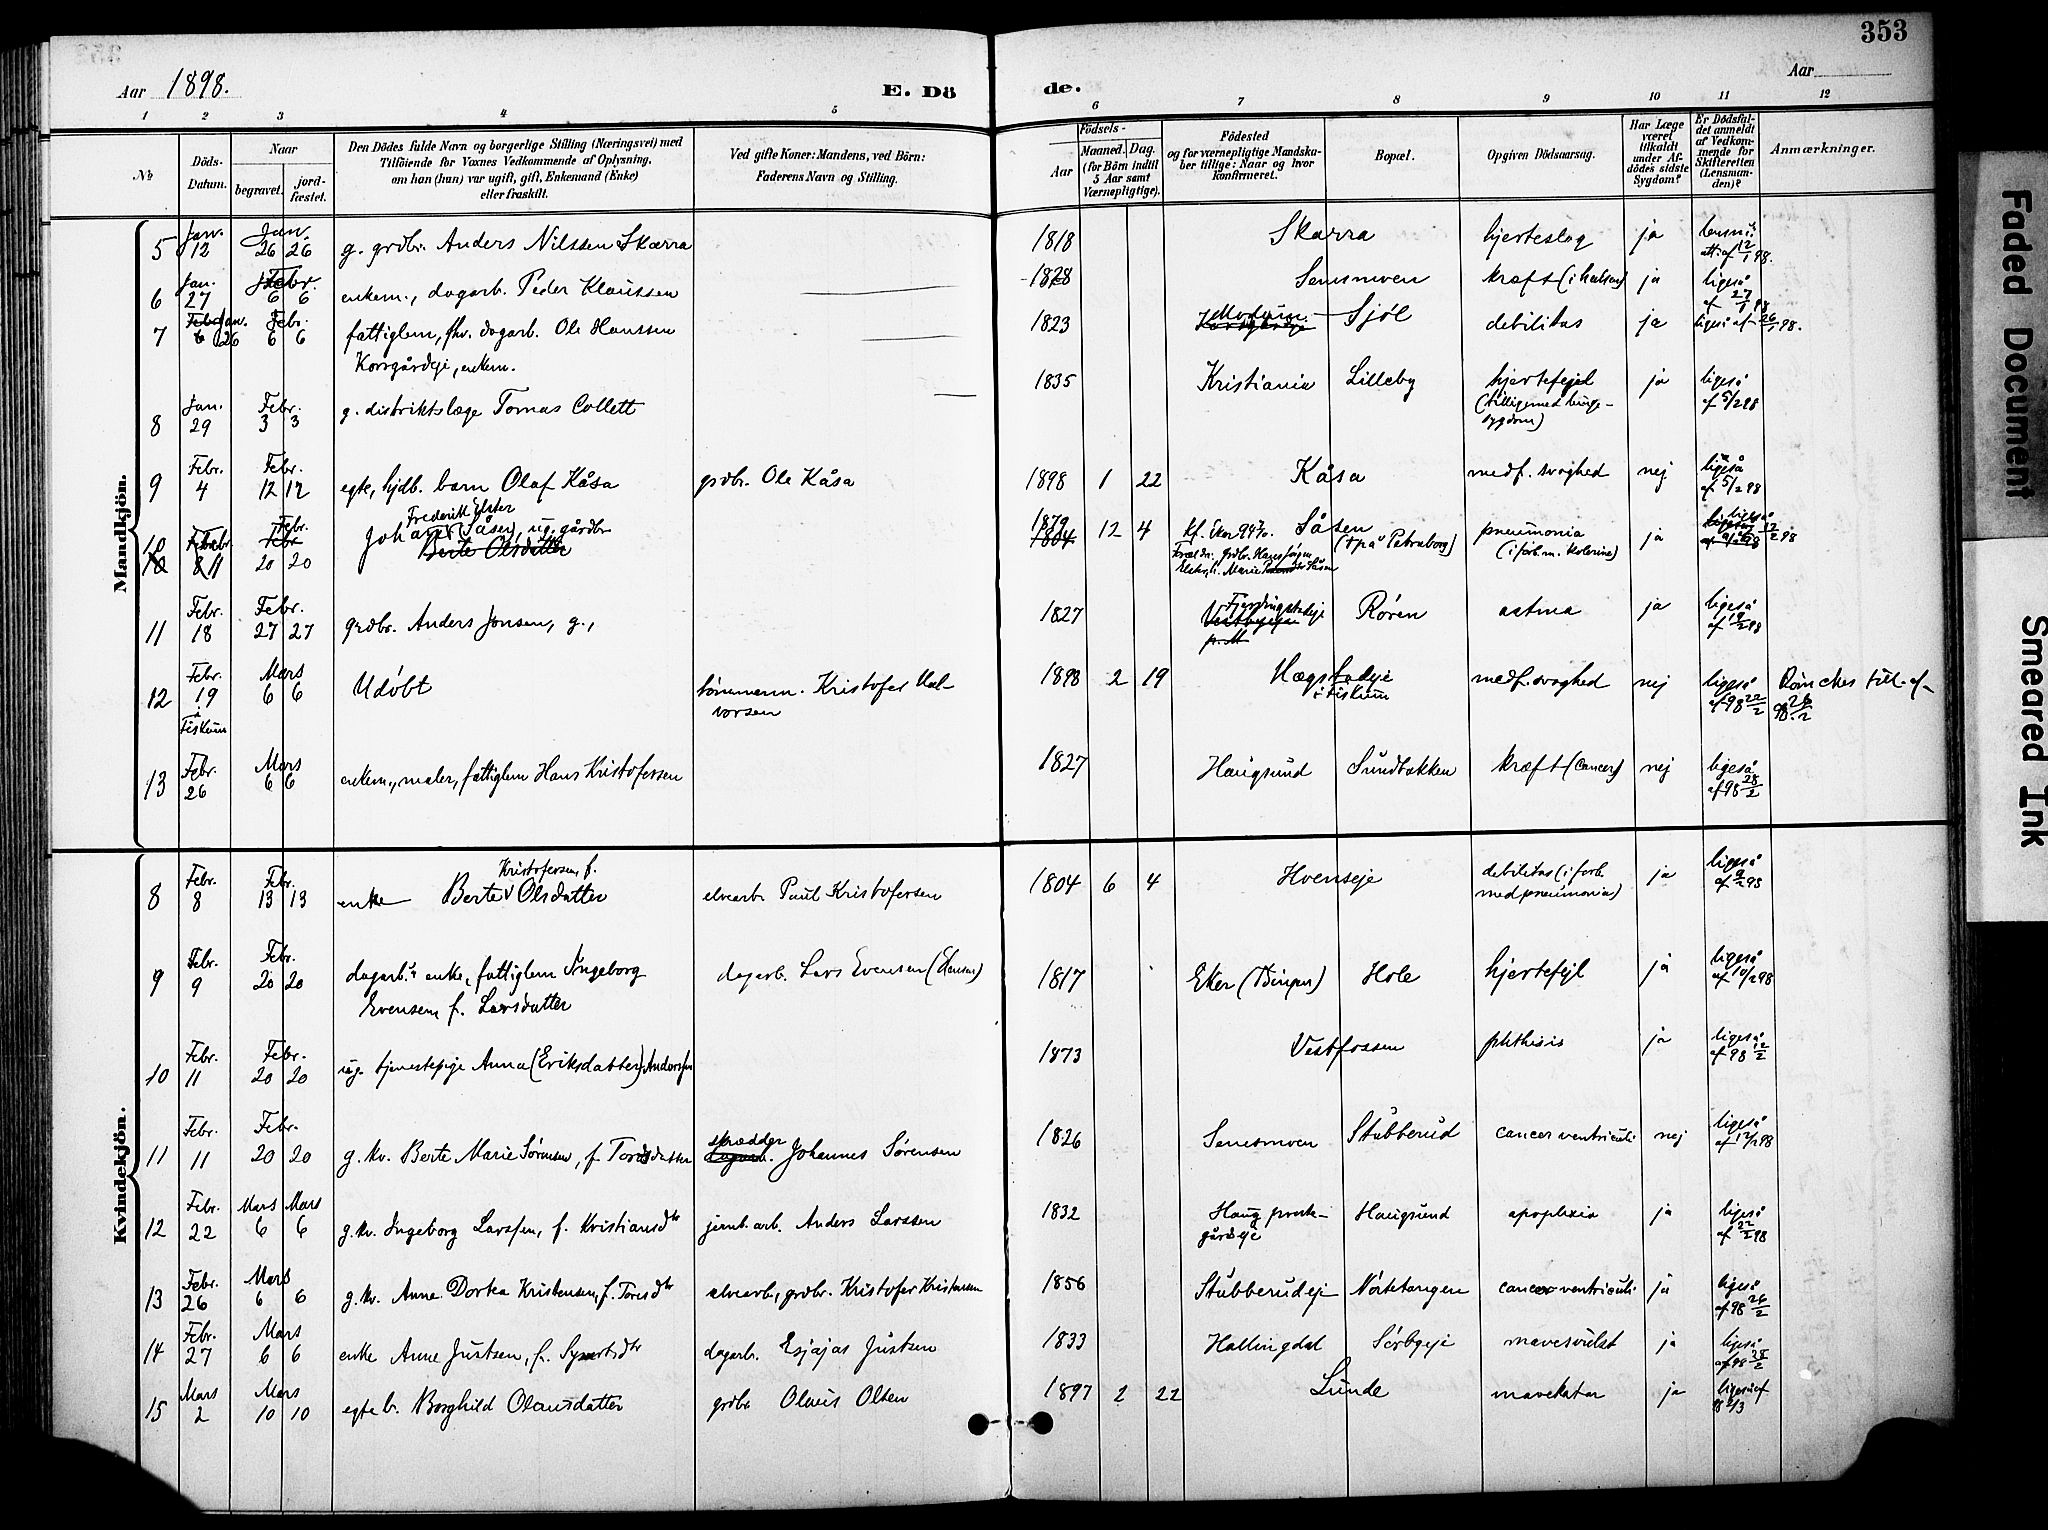 353
Aar 1898. E. Dö de. Aar
1 2 3 4 5 6 7 8 9 10 11 12
No
Döds-Datum.
Naar begravet. jord-fæstet.
Den Dödes fulde Navn og borgerlige Stilling (Næringsvei) med Tilföiende for Voxnes Vedkommende af Oplysning, om han (hun) var ugift, gift, Enkemand (Enke) eller fraskilt.
Ved gifte Koner: Mandens, ved Börn: Faderens Navn og Stilling.
Födsels-
Aar Maaned. Dag. (for Börn indtil 5 Aar samt Værnepligtige).
Födested og for værnepligtige Mandskaber tillige: Naar og hvor konfirmeret.
Bopæl.
Opgiven Dödsaarsag.
Har Læge været tilkaldt under Afdödes sidste Sygdom?
Er Dödsfaldet anmeldt af Vedkommende for Skifteretten (Lensmanden)?
Anmærkninger.
Mandkjön.
5 Jan. 12 Jan. 26 26 g. grdbr. Anders Nilssen Skarra 1818 Skarra hjerteslag ja att. af 12/1 98.
6 Jan. 27 Febr. 6 6 enkem., dagarb. Peder Klaussen 1828 Semsmoen kræft (i halsen) ja ligeså af 27/1 98
7 Jan. 26 Febr. 6 6 fattiglem, fhv. dagarb. Ole Hanssen 1823 Modum Sjöl debilitas ja ligeså af 26/1 98.
Korsgårdeje, enkem.
8 Jan. 29 Febr. 3 3 g. distriktslæge Tomas Collett 1835 Kristiania Lilleby hjertefejl ja ligeså af 5/2 98
(tilligemed lungesygdom)
9 Febr. 4 Febr. 12 12 egte, hjdb. barn Olaf Kåsa grdbr. Ole Kåsa 1898 1 22 Kåsa medf. svaghed nej ligeså af 5/2 98
10 11 Febr. 20 20 Johan Fredrik (Såsen), ug. gårdbr. Berte Olsdatter 1879 1804 12 4 Såsen pneumonia ja ligeså 12/2 98
11 Febr. 18 Febr. 27 27 grdbr. Anders Jonsen, g., 1827 Røren astma ja ligeså af 19/2 98
12 Febr. 19 i Fiskum Mars 6 6 Udöbt Kristofer Halvorsen 1898 2 19 Hægstadeje i Fiskum medf. svaghed nej ligeså af 98 22/2
13 Febr. 26 Mars 6 6 enkem., maler, fattiglem Hans Kristofersen 1827 Haugsund Sundbakken kræft (cancer) nej ligeså af 98 28/2
Kvindekjön.
8 Febr. 8 Febr. 13 13 enke Berte Kristofersen, f. Olsdatter elvearb. Paul Kristofersen 1804 6 4 Hvenseje debilitas (i forb. med pneumonia) ja ligeså af 9/2 98
9 Febr. 9 Febr. 20 20 dagarb.s enke, fattiglem Ingeborg dagarb. Lars Evensen 1817 Eker (Bingen) Hole hjertefejl ja ligeså af 10/2 98
Evensen f. Larsdatter
10 Febr. 11 Febr. 20 20 ug. tjenestepige Anna (Eriksdatter) Andersen 1873 Vestfossen phthisis ja ligeså af 98 12/2
11 Febr. 11 Febr. 20 20 g. kv. Berte Marie Sørensen, f. Toresdatter skrædder Johannes Sørensen 1826 Semsmoen Stubberud cancer ventriculi nej ligeså af 12/2 98
12 Febr. 22 Mars 6 Mars 6 g. kv. Ingeborg Larssen, f. Kristiansdtr jernb. arb. Anders Larssen 1832 Haug prestegårdseje Haugsund apoplexia ja ligeså af 22/2 98
13 Febr. 26 Mars 6 6 g. kv. Anne Dortea Kristensen, f. Toresdtr elvearb., grdbr. Kristofer Kristensen 1856 Stubberudeje Nörtetangen cancer ventriculi ja ligeså af 98 26/2
14 Febr. 27 Mars 6 6 enke Anne Justsen, f. Syvertsdtr dagarb. Esajas Justsen 1833 Hallingdal Sörbyeje mavesvulst ja ligeså af 98 28/2
15 Mars 2 Mars 10 10 egte b. Borghild Olausdatter grdbr. Olaus Olsen 1897 2 22 Lunde mavekatar ja ligeså af 98 2/3
Faded Document
Smeared Ink